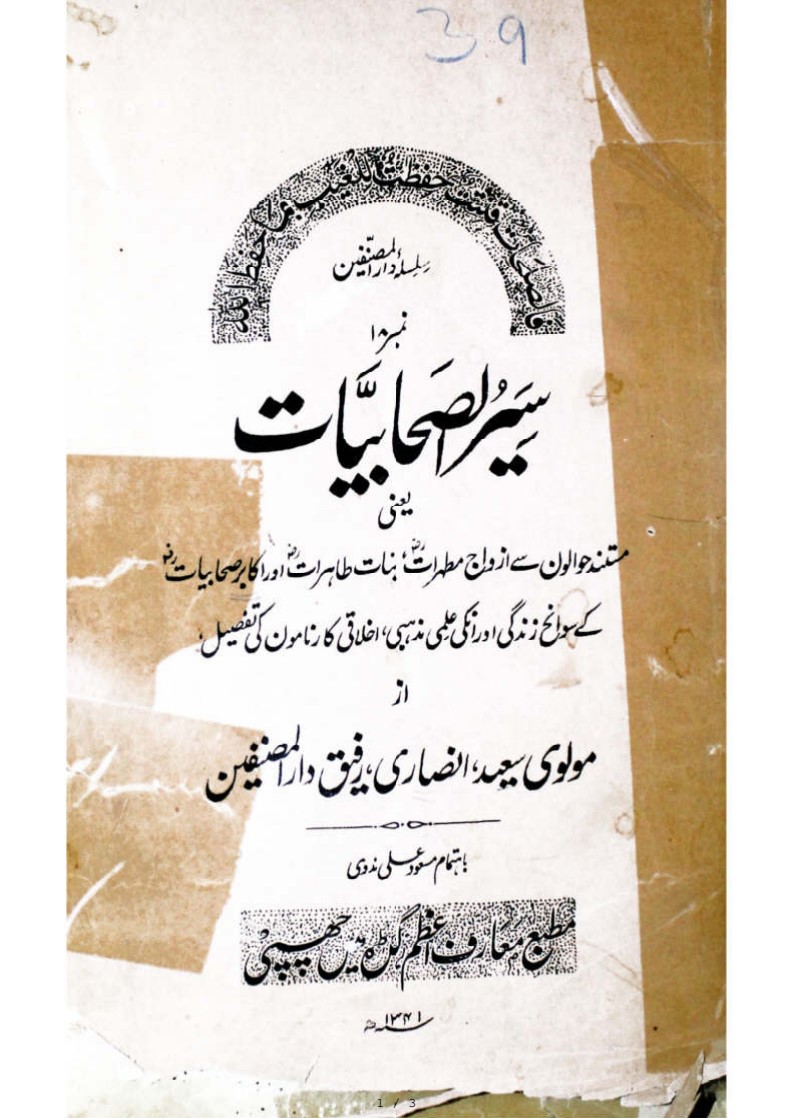 39
فالصلحت قنتت حفظت للغيب بما حفظ الله
سلسلۂ دارالمصنّفین
نمبر ۱۸
سِیَرُ الصَحَابیَّات
یعنی
مستند حوالون سے ازواج مطہراتؓ، بنات طاہراتؓ اور اکابر صحابیاتؓ
کے سوانح زندگی اور انکی علمی مذہبی، اخلاقی کارنامون کی تفصیل،
از
مولوی سعید، انصاری، رفیق دارالمصنفین
باہتمام مسعود علی ندوی
مطبع معارف اعظم گڑہ مین چھپی
سنہ ۱۳۴۱ھ
1 / 3